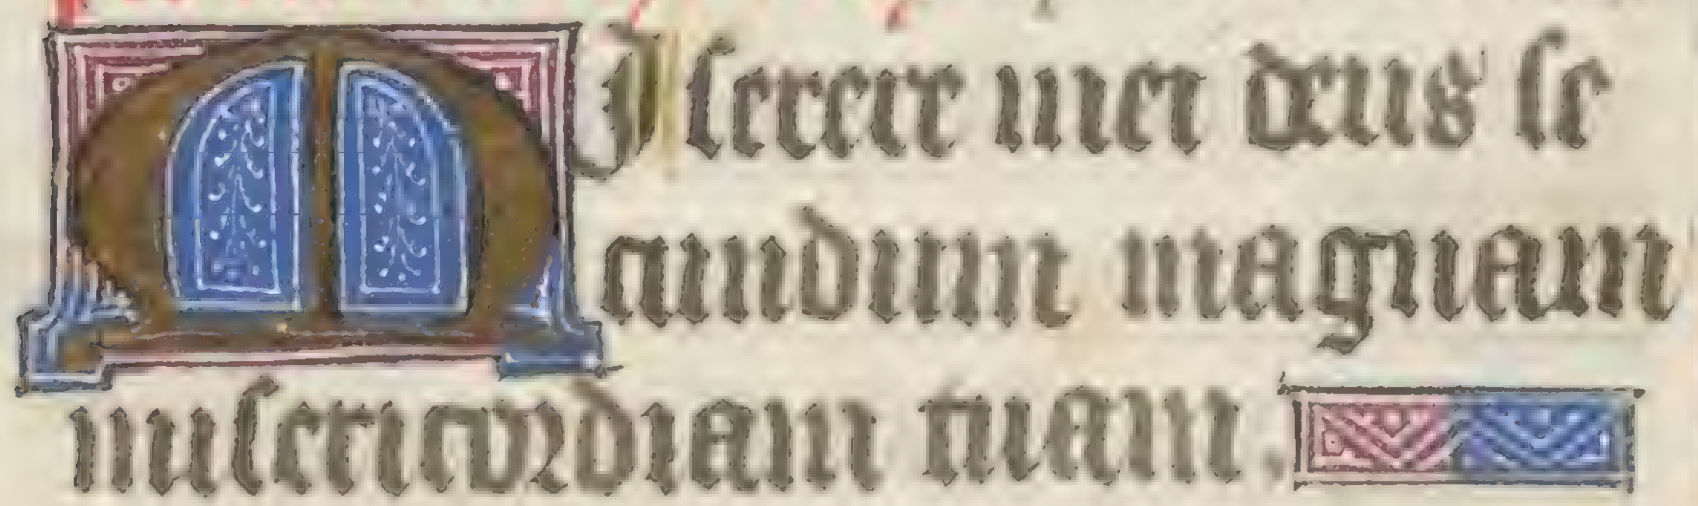 MIserere mei deus se
cundum magnam
misericordiam tuam.